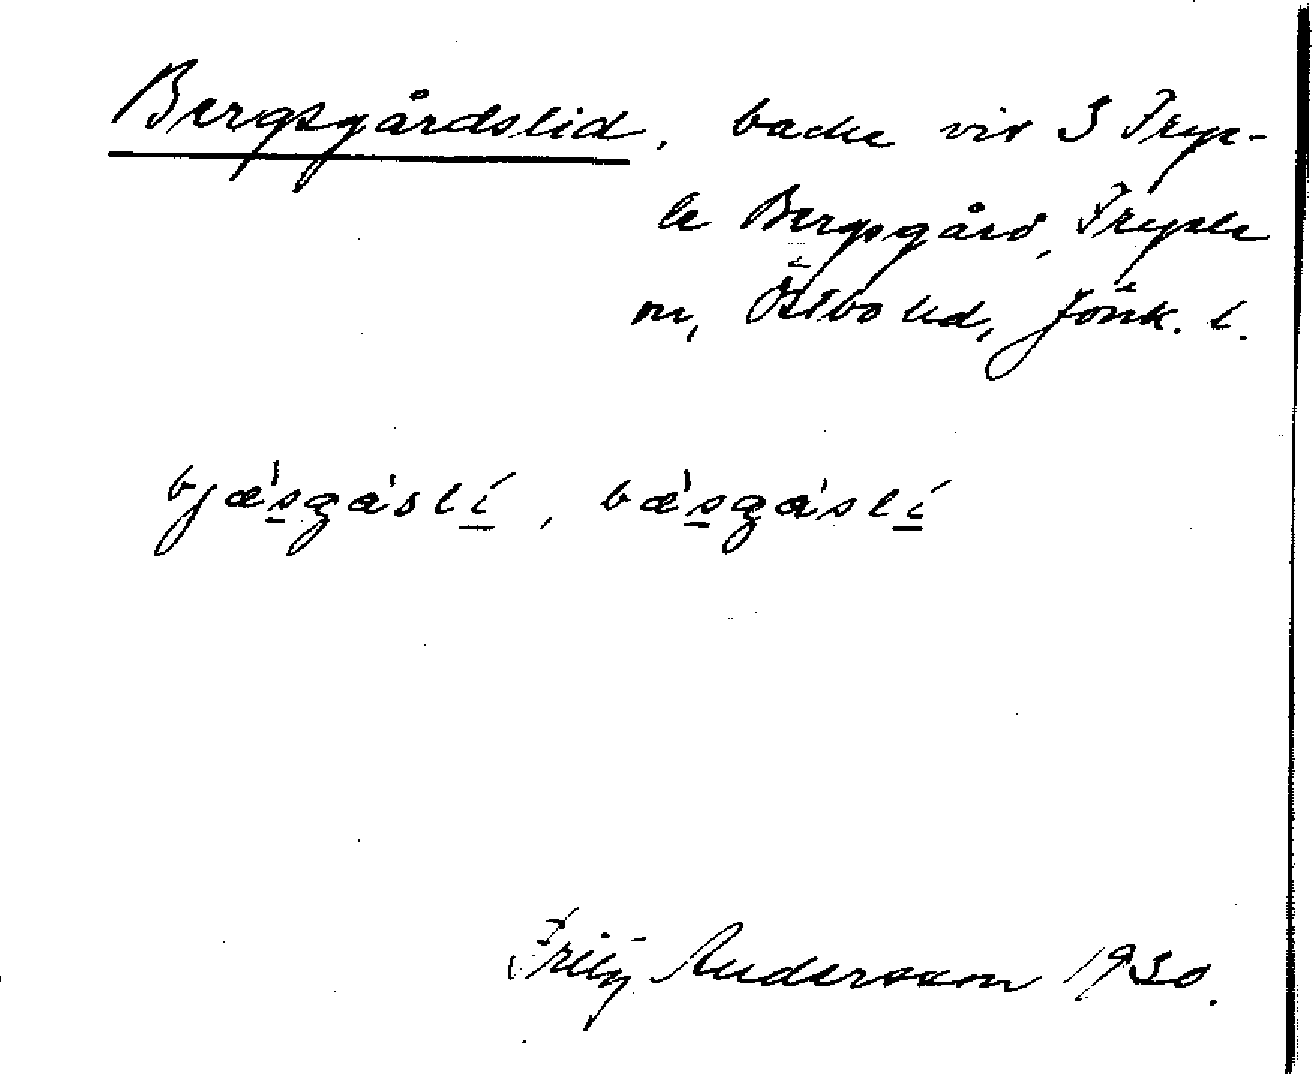 Bergsgårdslid, backe vid S Frye-
le Bergsgård, Fryele
sn, Östbo hd, Jönk. l.
bjæ'sga'slí, bæ'sga'slí
Fritz Andersson 1930.